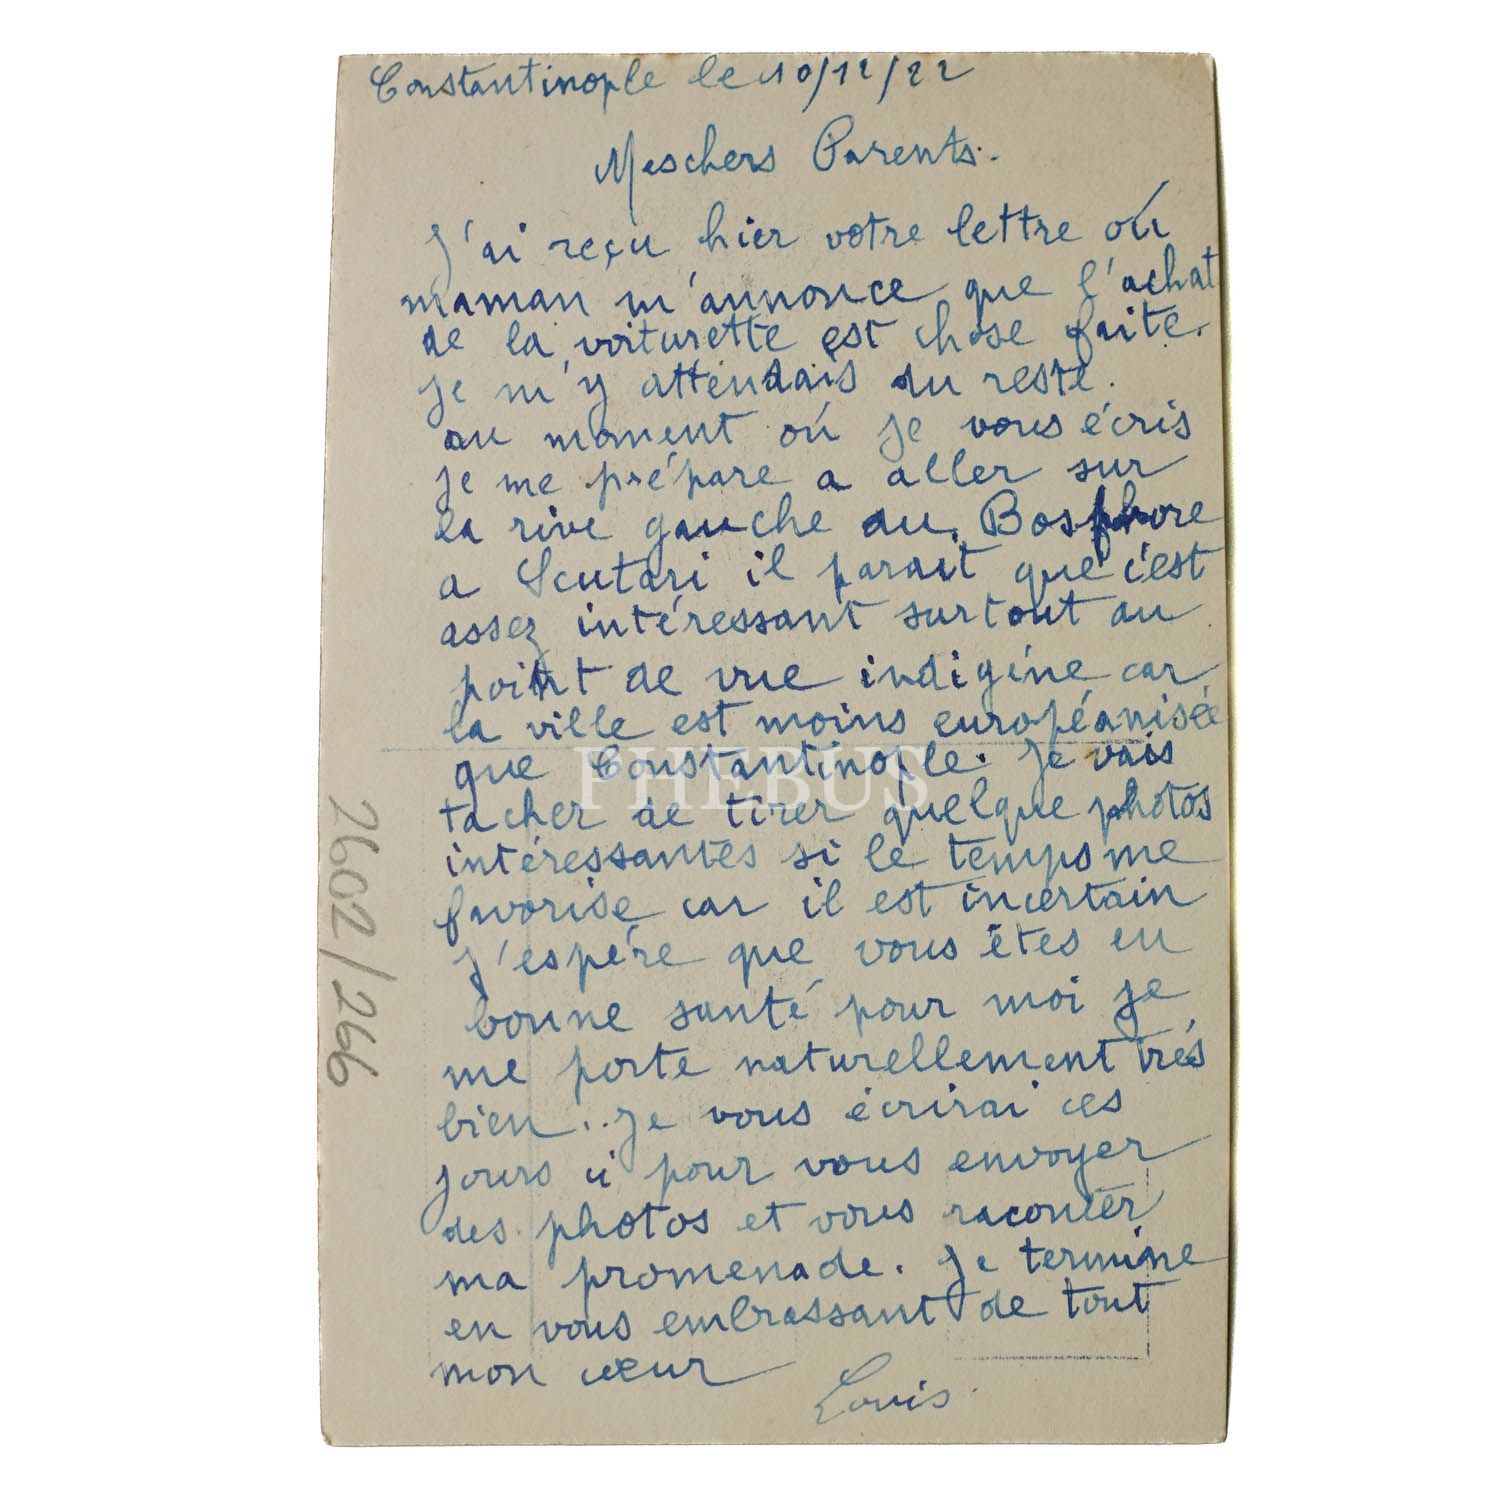 Constantinople le 10/12/22
Meschers Parents.
J'ai reçu hier votre lettre où
maman m'annonce que l'achat
de la voiturette est chose faite.
Je m'y attendais du reste.
au moment où je vous écris
je me prépare a aller sur
la rive gauche du Bosphore
a Scutari il parait que c'est
assez intéressant surtout au
point de vue indigéne car
la ville est moins européanisée
que Constantinople. Je vais
tacher de tirer quelque photos
intéressantes si le temps me
favorise car il est incertain
J'espére que vous êtes en
bonne santé pour moi je
me porte naturellement trés
bien.. Je vous écrirai ces
jours ci pour vous envoyer
des photos et vous raconter
ma promenade. Je termine
en vous embrassant de tout
mon cœur
Louis.
2602/266
PHEBUS